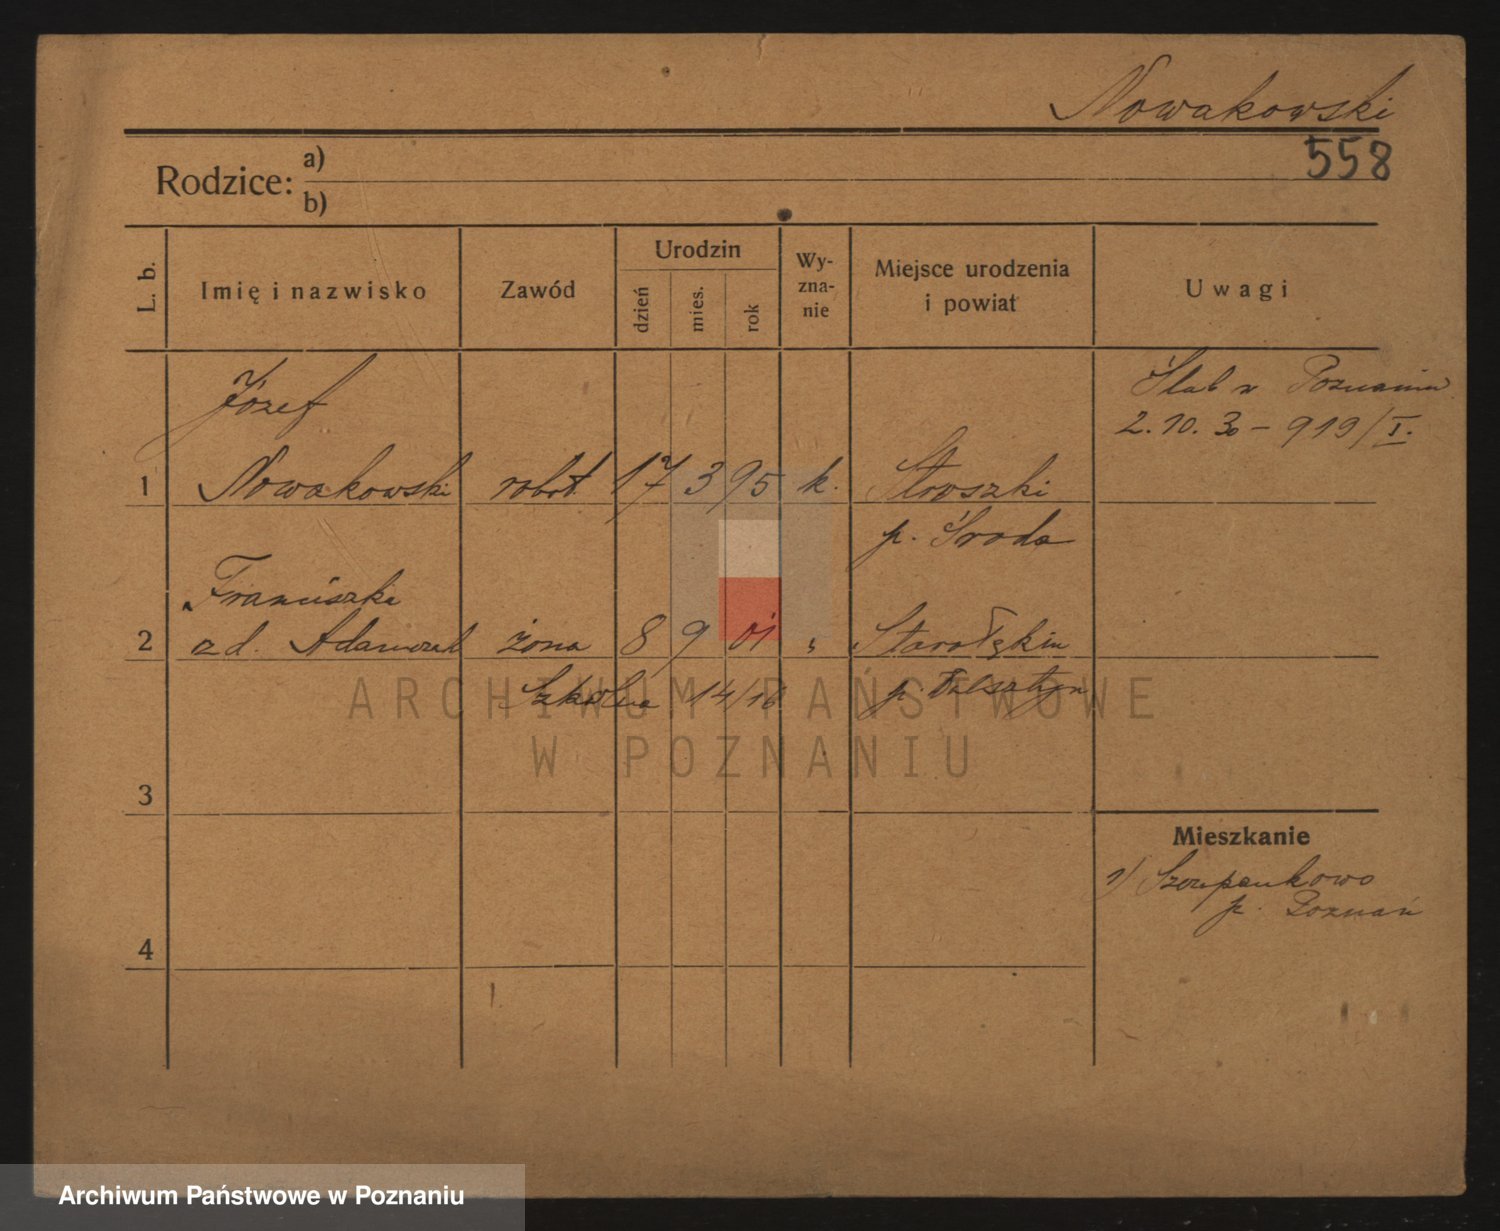 Nowakowski
558
Rodzice: a)
b)
L. b.
Imię i nazwisko
Zawód
Urodzin
dzień
mies.
rok
Wy-
zna-
nie
Miejsce urodzenia
i powiat
Uwagi
Józef
Ślub w Poznaniu
2.10.30 – 919/I.
1 Nowakowski robot. 17 3 95 k.
p. Środa
Franciszka
2 zd. Adamczak żona 8 9 01 "
Szkolna 14/16
ARCHIWUM PAŃSTWOWE
W POZNANIU
3
Mieszkanie
1) Szczepankowo
p. Poznań
4
Archiwum Państwowe w Poznaniu